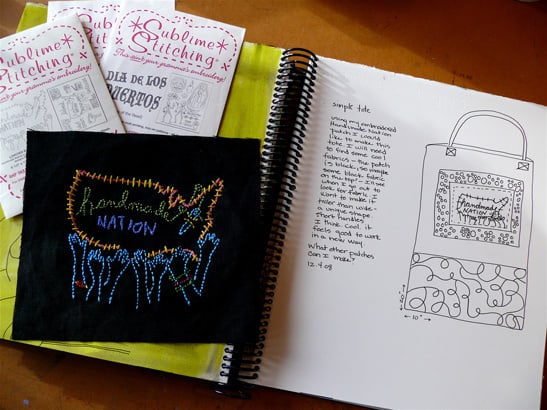 Sublime
Stitching
This ain't your gramma's embroidery!
Sublime
Stitching
This ain't your gramma's embroidery!
DIA DE LOS
MUERTOS
handmade
NATION
simple tote
using my embroidered
Handmade Nation
patch I would
like to make this
tote. I will need
to find some cool
fabrics - the patch
is black, so maybe
some black fabric
on the top -
when I go out to
look for fabric I
want to make it
taller than wide -
a unique shape.
short handles
I think cool. it
feels good to work
in a new way.
What other patches
can I make?
12.4.08
handmade
NATION
10"